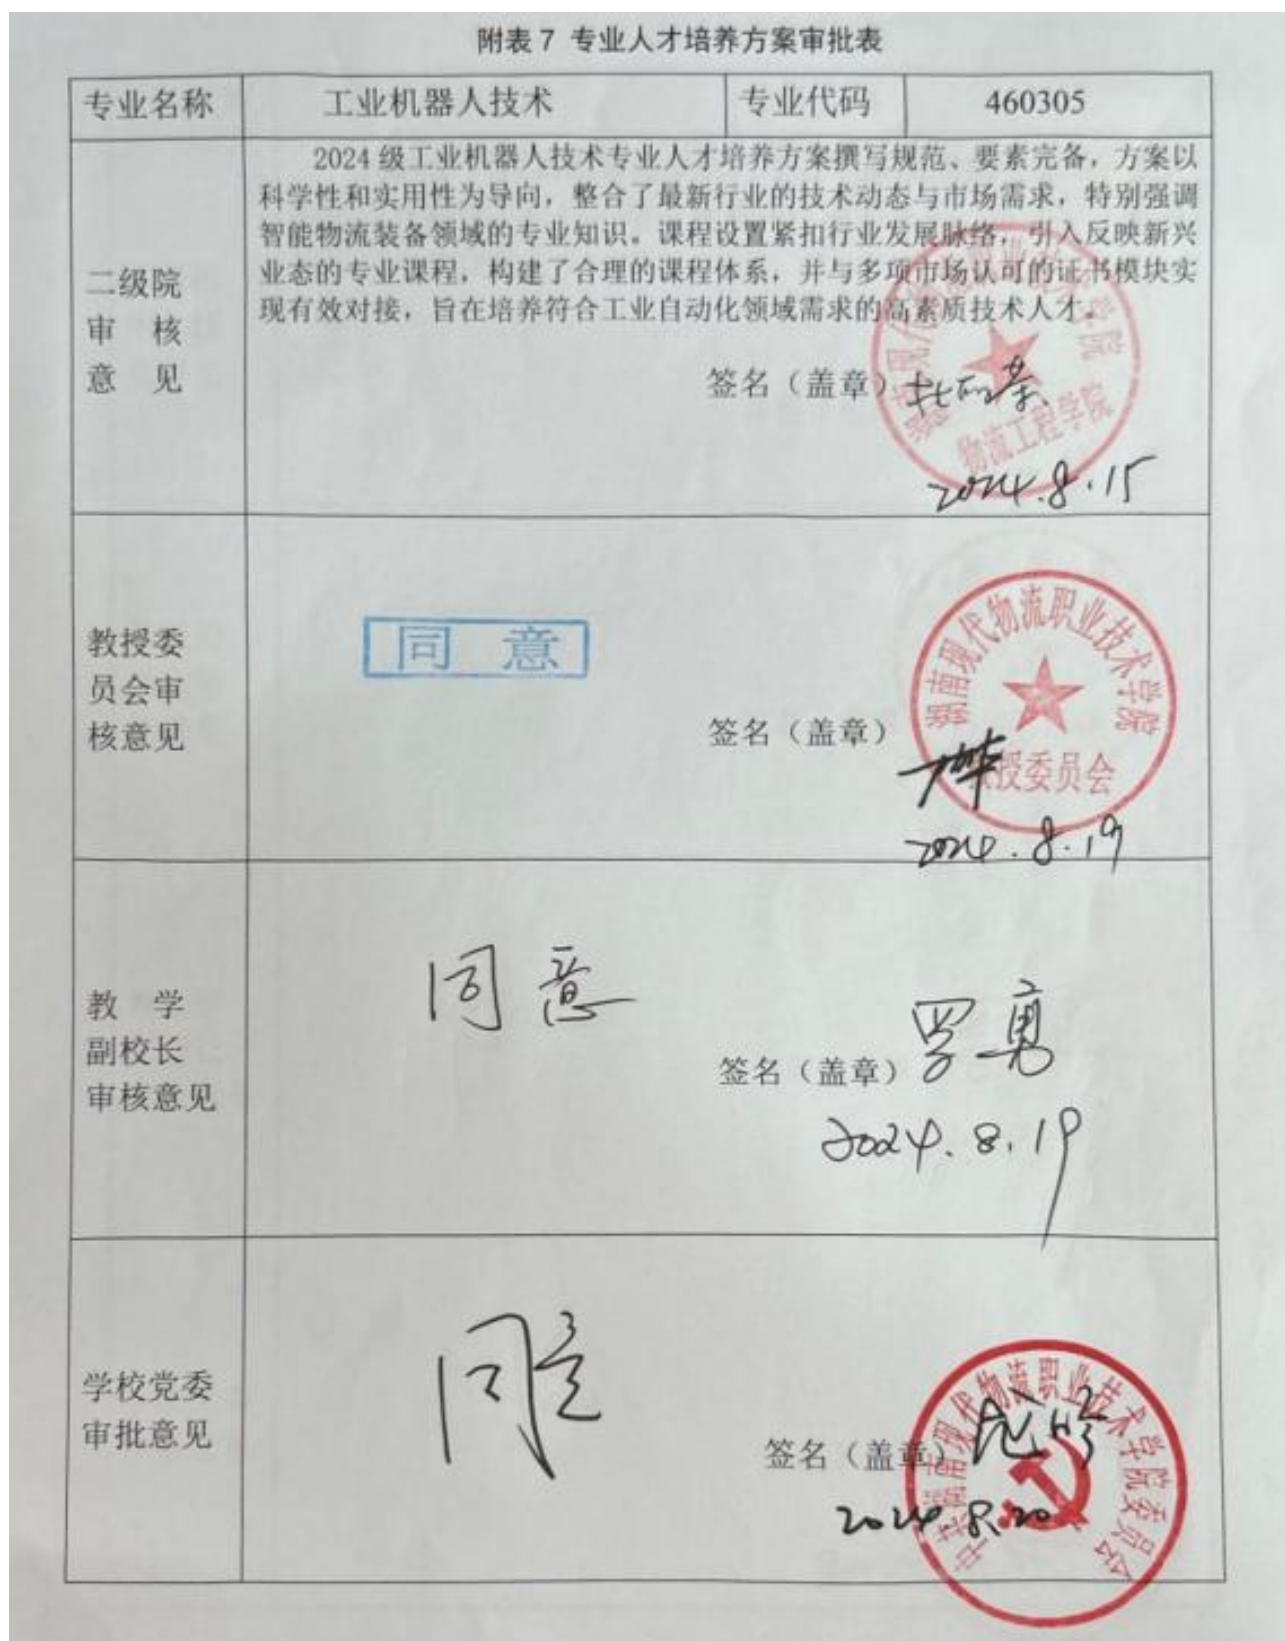 附表 7 专业人才培养方案审批表
专业名称 工业机器人技术 专业代码 460305
2024 级工业机器人技术专业人才培养方案撰写规范、要素完备，方案以
科学性和实用性为导向，整合了最新行业的技术动态与市场需求，特别强调
智能物流装备领域的专业知识。课程设置紧扣行业发展脉络，引入反映新兴
业态的专业课程，构建了合理的课程体系，并与多项市场认可的证书模块实
现有效对接，旨在培养符合工业自动化领域需求的高素质技术人才。
二级院
审 核
意 见
签名（盖章）
物流工程学院
2024.8.15
教授委
员会审
核意见
同 意
签名（盖章）
湖南现代物流职业技术学院
教授委员会
2024.8.19
教 学
副校长
审核意见
同意
签名（盖章）罗勇
2024.8.19
学校党委
审批意见
同意
签名（盖章）
中共湖南现代物流职业技术学院委员会
2024.8.20